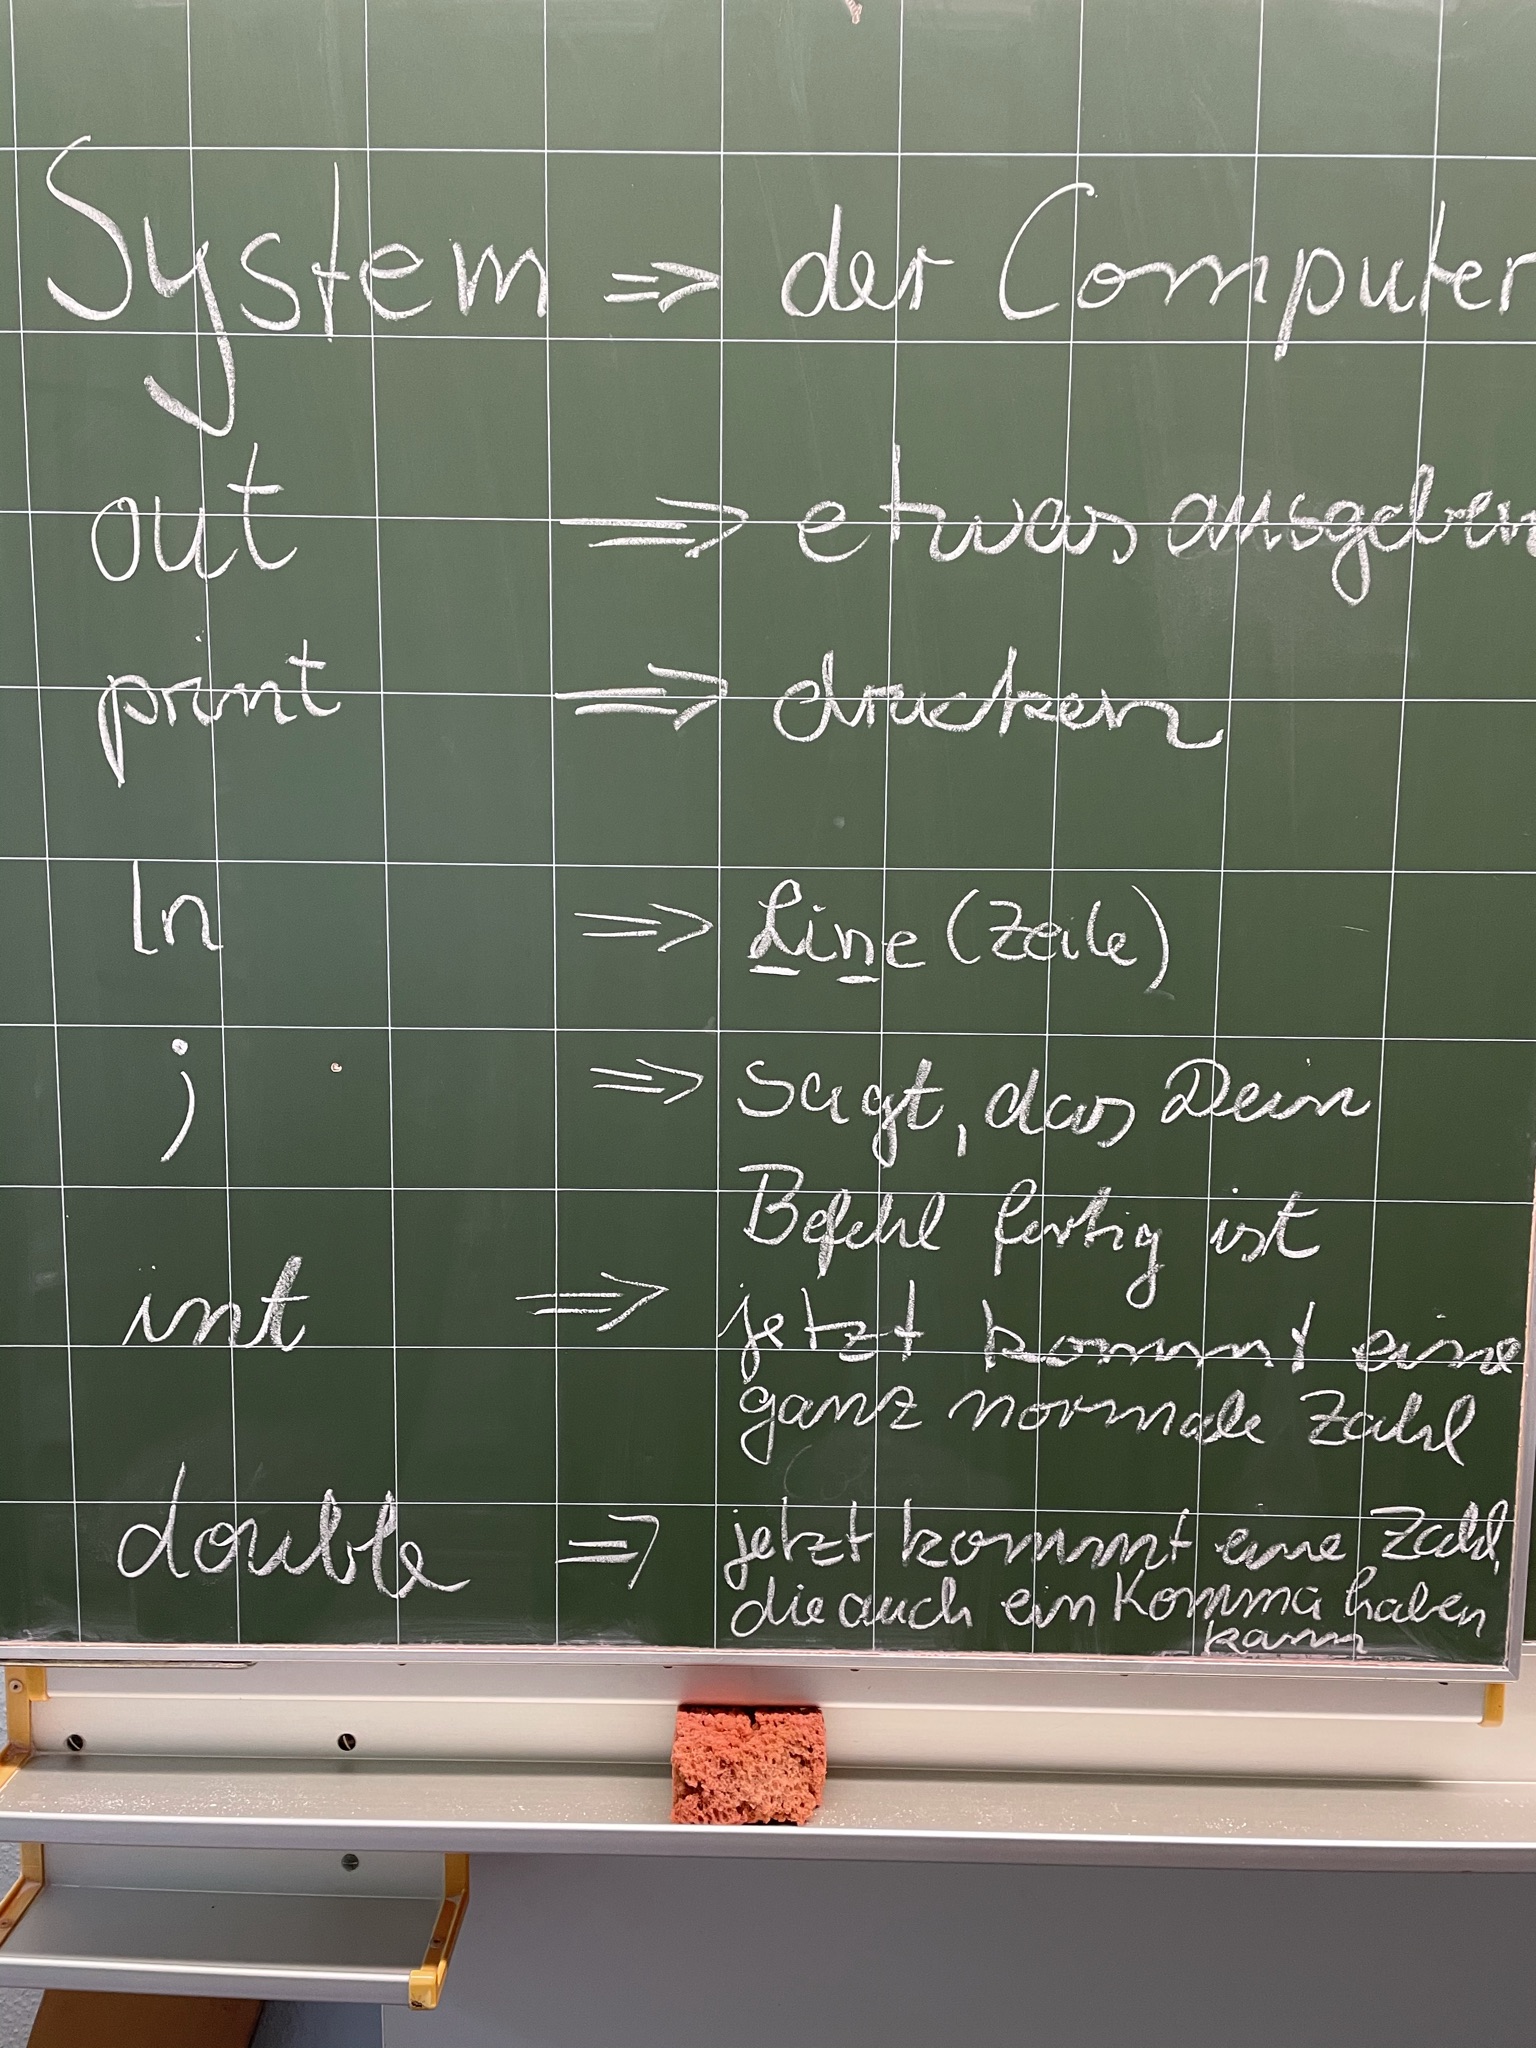 System => der Computer
out => etwas ausgeben
print => drucken
ln => Line (Zeile)
; => Sagt, das Dein
Befehl fertig ist
int => jetzt kommt eine
ganz normale Zahl
double => jetzt kommt eine Zahl,
die auch ein Komma haben
kann